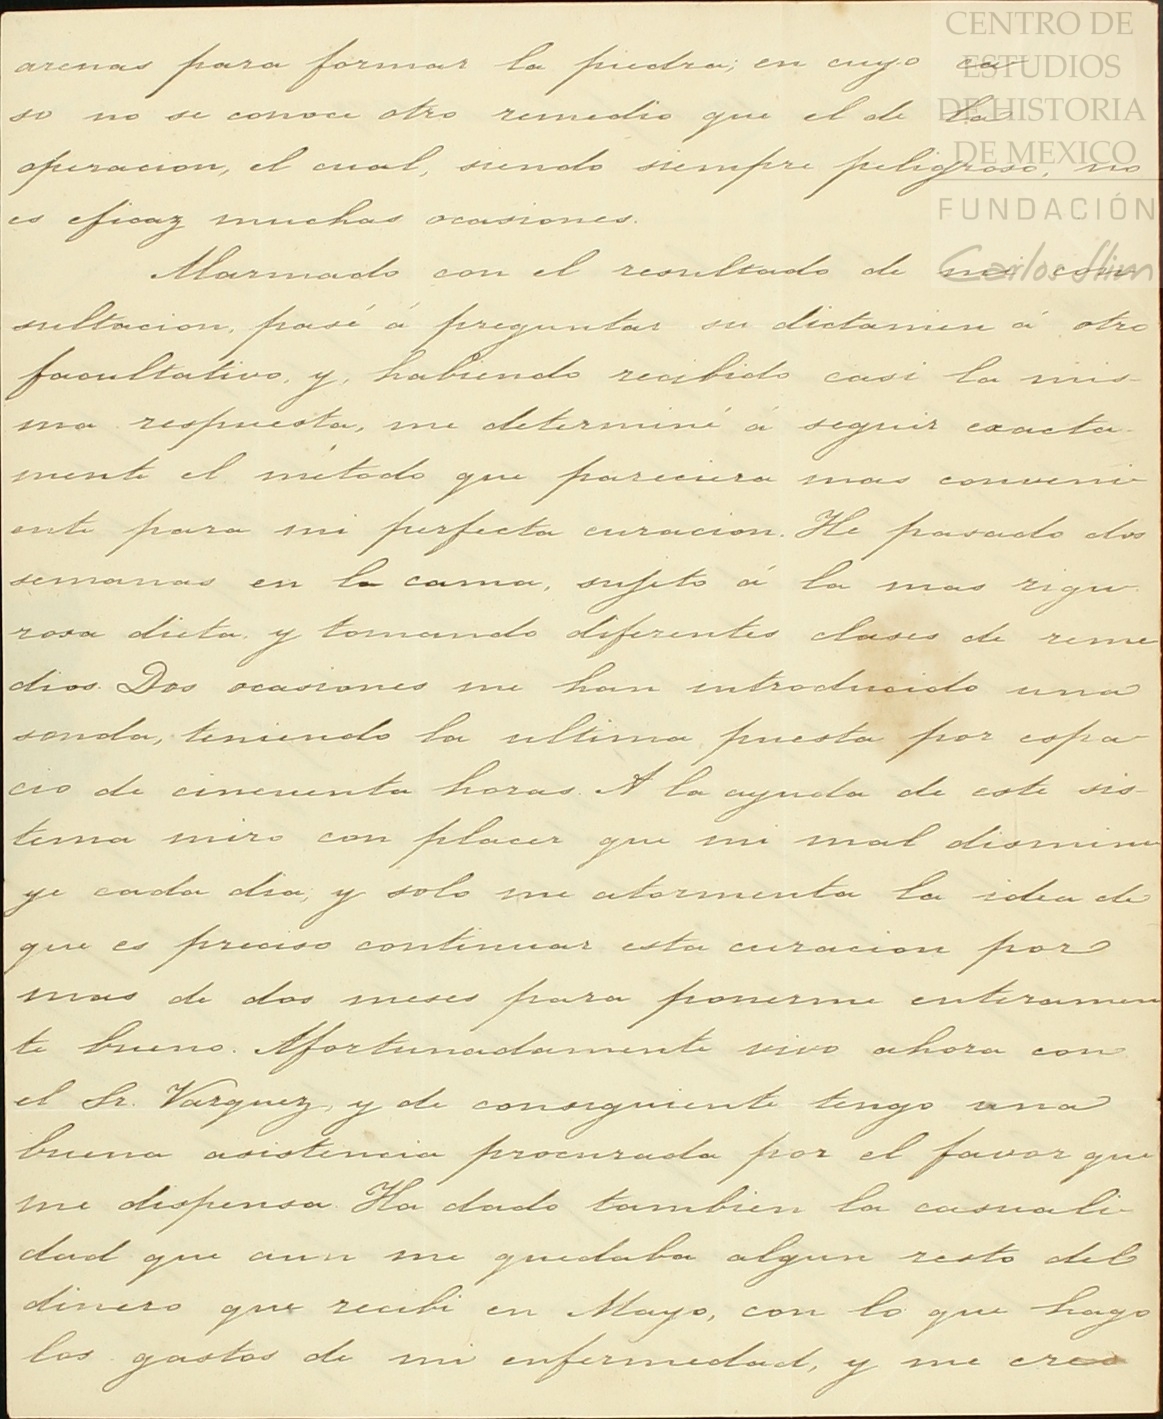 CENTRO DE
ESTUDIOS
DE HISTORIA
DE MEXICO
FUNDACIÓN
Carlos Slim
arenas para formar la piedra; en cuyo ca-
so no se conoce otro remedio que el de la
operacion, el cual, siendo siempre peligroso, no
es eficaz muchas ocasiones.
Alarmado con el resultado de mi con-
sultacion, pasé á preguntar su dictamen á otro
facultativo, y, habiendo recibido casi la mis-
ma respuesta, me determiné á seguir exacta-
mente el método que pareciera mas conveni-
ente para mi perfecta curacion. He pasado dos
semanas en la cama, sujeto á la mas rigu-
rosa dieta, y tomando diferentes clases de reme
dios. Dos ocasiones me han introducido una
sonda, teniendo la ultima puesta por espa-
cio de cincuenta horas. A la ayuda de este sis-
tema miro con placer que mi mal disminu
ye cada dia, y solo me atormenta la idea de
que es preciso continuar esta curacion por
mas de dos meses para ponerme enteramen
te bueno. Afortunadamente vivo ahora con
el Sr. Vazquez, y de consiguiente tengo una
buena asistencia procurada por el favor que
me dispensa. Ha dado tambien la casuali-
dad que aun me quedaba algun resto del
dinero que recibi en Mayo, con lo que hago
los gastos de mi enfermedad, y me creo